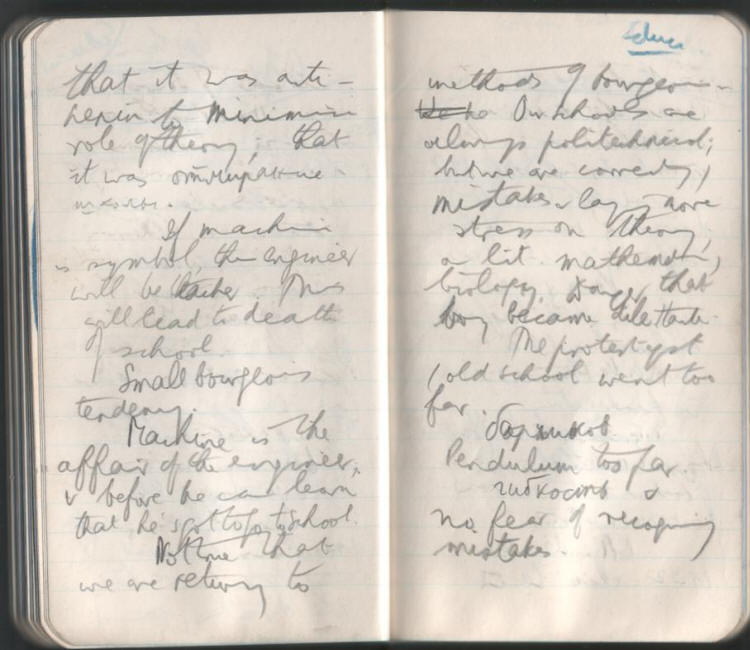 that it was anti-
Lenin to minimise
role of theory, that
it was отмирание
школы.
If machine
is symbol, the engineer
will be teacher. This
will lead to death
of school.
Small bourgeois
tendency.
Machine is the
affair of the engineer,
& before he can learn
that he's got to go to school.
Not true that
we are returning to
Educ
methods of bourgeoi-
Our schools are
always politechnical;
but we are correcting
mistakes & laying more
stress on theory,
on lit. mathematics,
biology. Danger that
boy became dilettante.
The protest against
old school went too
far.
Pendulum too far.
гибкость &
no fear of recognising
mistakes.